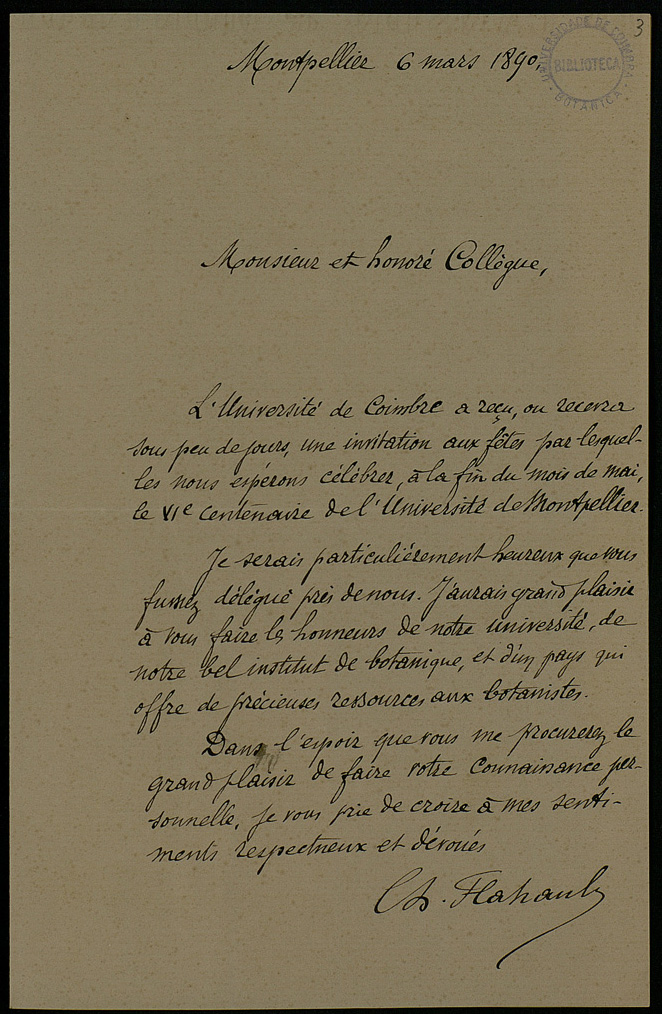 3
UNIVERSIDADE DE COIMBRA
BIBLIOTECA
BOTANICA
Montpellier 6 mars 1890,
Monsieur et honoré Collègue,
L'Université de Coimbre a reçu, ou recevra
sous peu de jours, une invitation aux fêtes par lesquel-
les nous espérons célébrer, à la fin du mois de mai,
le VIe centenaire de l'Université de Montpellier.
Je serais particulièrement heureux que vous
fussiez délégué près de nous. J'aurais grand plaisir
à vous faire les honneurs de notre université, de
notre bel institut de botanique, et d'un pays qui
offre de précieuses ressources aux botanistes.
Dans l'espoir que vous me procurerez le
grand plaisir de faire votre connaissance per-
sonnelle, je vous prie de croire à mes senti-
ments respectueux et dévoués
Ch. Flahault